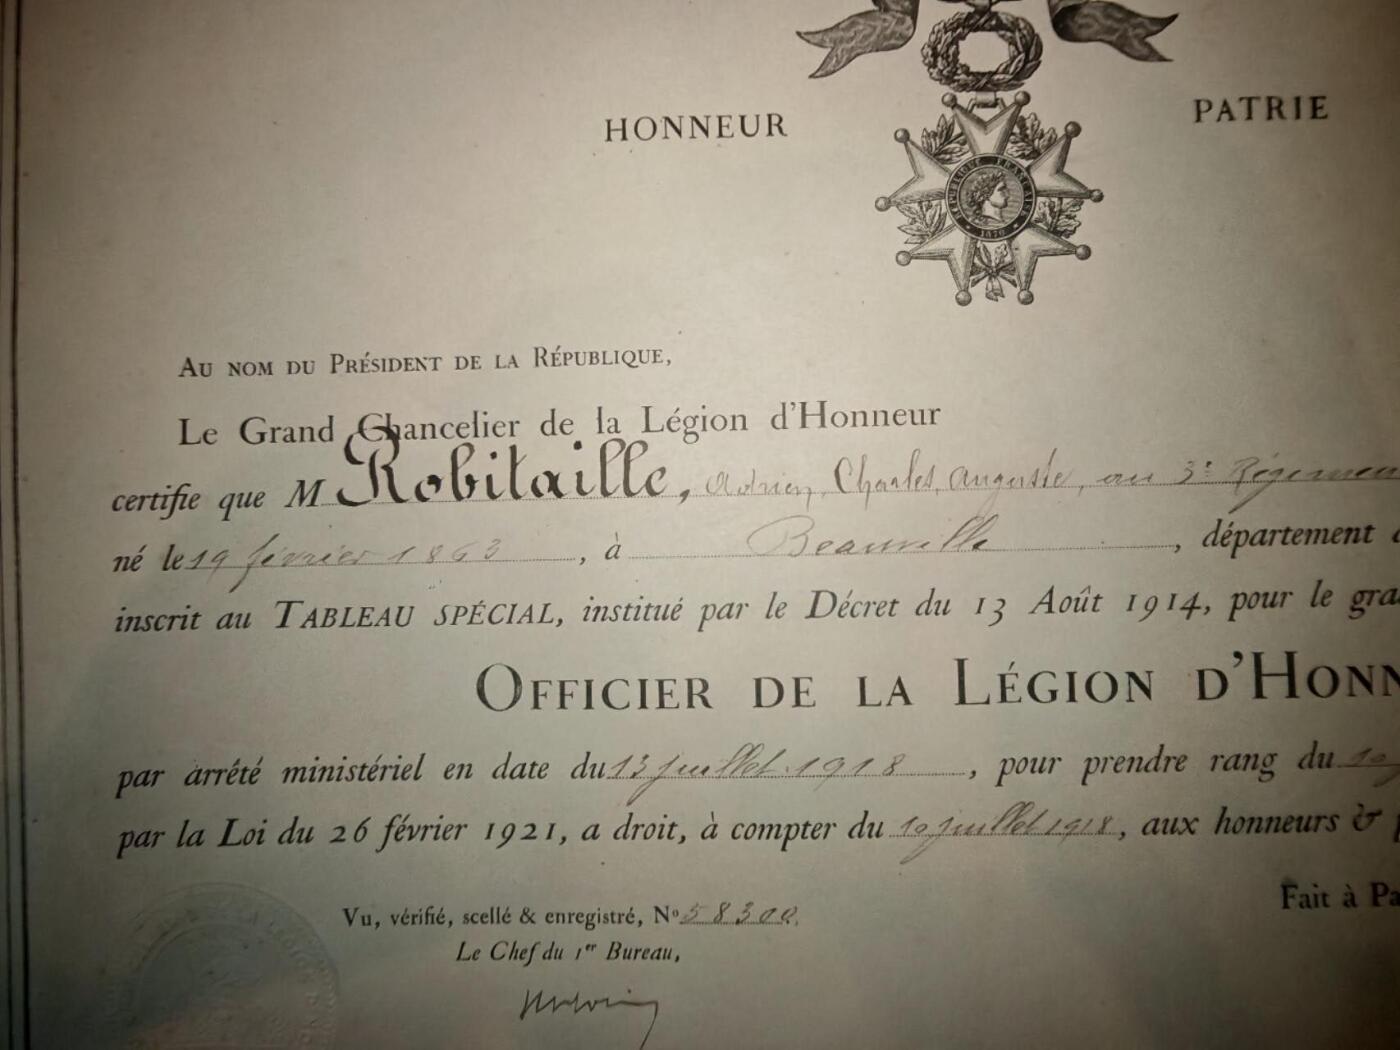 HONNEUR PATRIE
RÉPUBLIQUE FRANÇAISE
1870
AU NOM DU PRÉSIDENT DE LA RÉPUBLIQUE,
Le Grand Chancelier de la Légion d'Honneur
certifie que M Robitaille, Adrien, Charles, Auguste, au 3e Régimen
né le 19 février 1863, à Beauville, département
inscrit au TABLEAU SPÉCIAL, institué par le Décret du 13 Août 1914, pour le gra
OFFICIER DE LA LÉGION D'HONN
par arrêté ministériel en date du 13 juillet 1918, pour prendre rang du 10
par la Loi du 26 février 1921, a droit, à compter du 10 juillet 1918, aux honneurs &
Fait à Pa
Vu, vérifié, scellé & enregistré, No 58300
Le Chef du 1er Bureau,